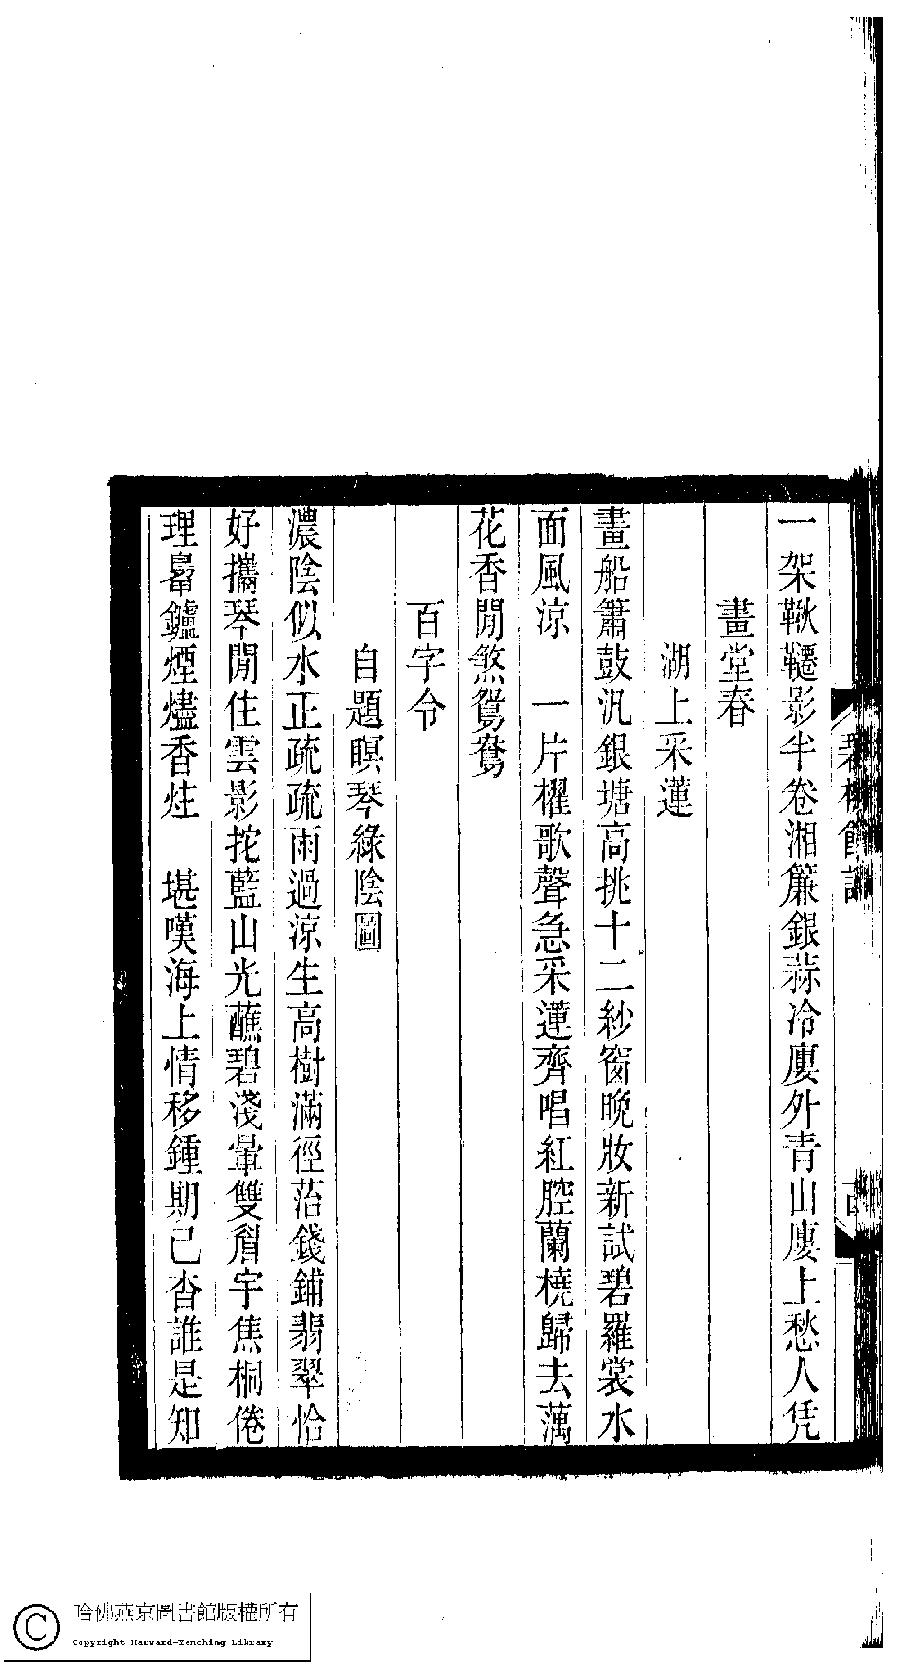 一架鞦韆影半卷湘簾銀蒜冷廔外青山廔上愁人凭
畫堂春
湖上采蓮
畫船簫鼓汎銀塘高挑十二紗窗晚妝新試碧羅裳水
面風涼　一片櫂歌聲急采蓮齊唱紅腔蘭橈歸去藕
花香閒煞鴛鴦
百字令
自題瞑琴綠陰圖
濃陰似水正疏疏雨過涼生高樹滿徑萡錢鋪翡翠恰
好攜琴閒住雲影拕藍山光蘸碧淺暈雙眉宇焦桐倦
理暈鑪煙燼香炷　堪嘆海上情移鍾期已杳誰是知
哈佛燕京圖書館版權所有
Copyright Harvard-Yenching Library